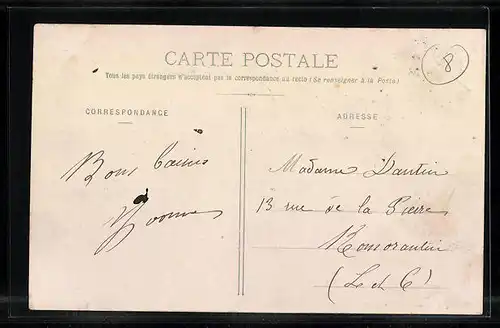 CARTE POSTALE
Tous les pays étrangers n'acceptent pas la correspondance au recto (Se renseigner à la Poste)
8
CORRESPONDANCE
Bons baisers
Yvonne
ADRESSE
Madame Dantin
13 rue de la Pierre
Romorantin
(L et C)